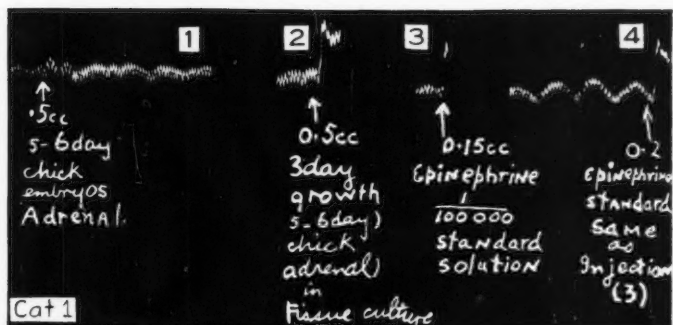 1
.5cc
5-6day
chick
embryos
Adrenal.
2
0.5cc
3day
growth
5-6day)
chick
adrenal)
in
Tissue culture
3
0.15cc
Epinephrine
1
100000
standard
solution
4
0.2
Epinephrine
standard
same
as
Injection
(3)
Cat 1